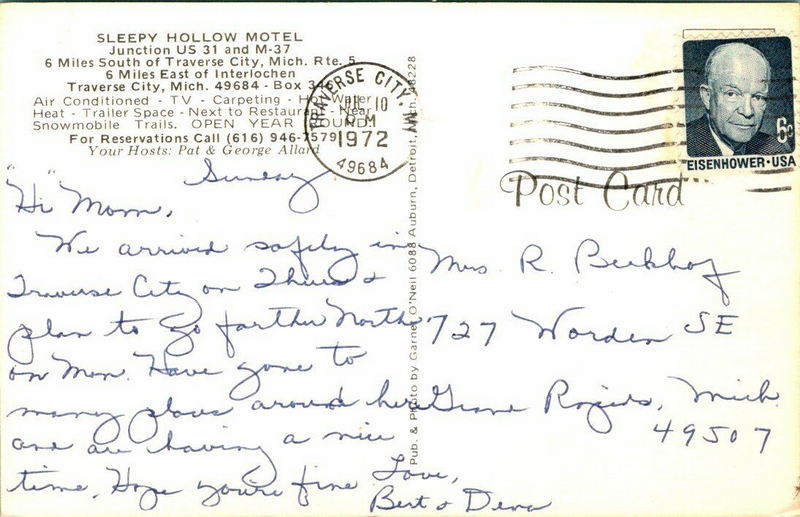 SLEEPY HOLLOW MOTEL
Junction US 31 and M-37
6 Miles South of Traverse City, Mich. Rte. 5
6 Miles East of Interlochen
Traverse City, Mich. 49684 - Box 3
Air Conditioned - TV - Carpeting - Hot Water
Heat - Trailer Space - Next to Restaurant - Near
Snowmobile Trails. OPEN YEAR ROUND
For Reservations Call (616) 946-7579
Your Hosts: Pat & George Allard
TRAVERSE CITY, MI
10
PM
1972
49684
6c
EISENHOWER·USA
Post Card
Pub. & Photo by Garnet O'Neil 6088 Auburn, Detroit, Mich. 48228
Sunday
Hi Mom,
We arrived safely in
Traverse City on Thurs &
plan to go farther North
on Mon. Have gone to
many places around here
and are having a nice
time. Hope you're fine
Love,
Bert & Dena
Mrs R. Beekhof
727 Worden SE
Grand Rapids, Mich
49507